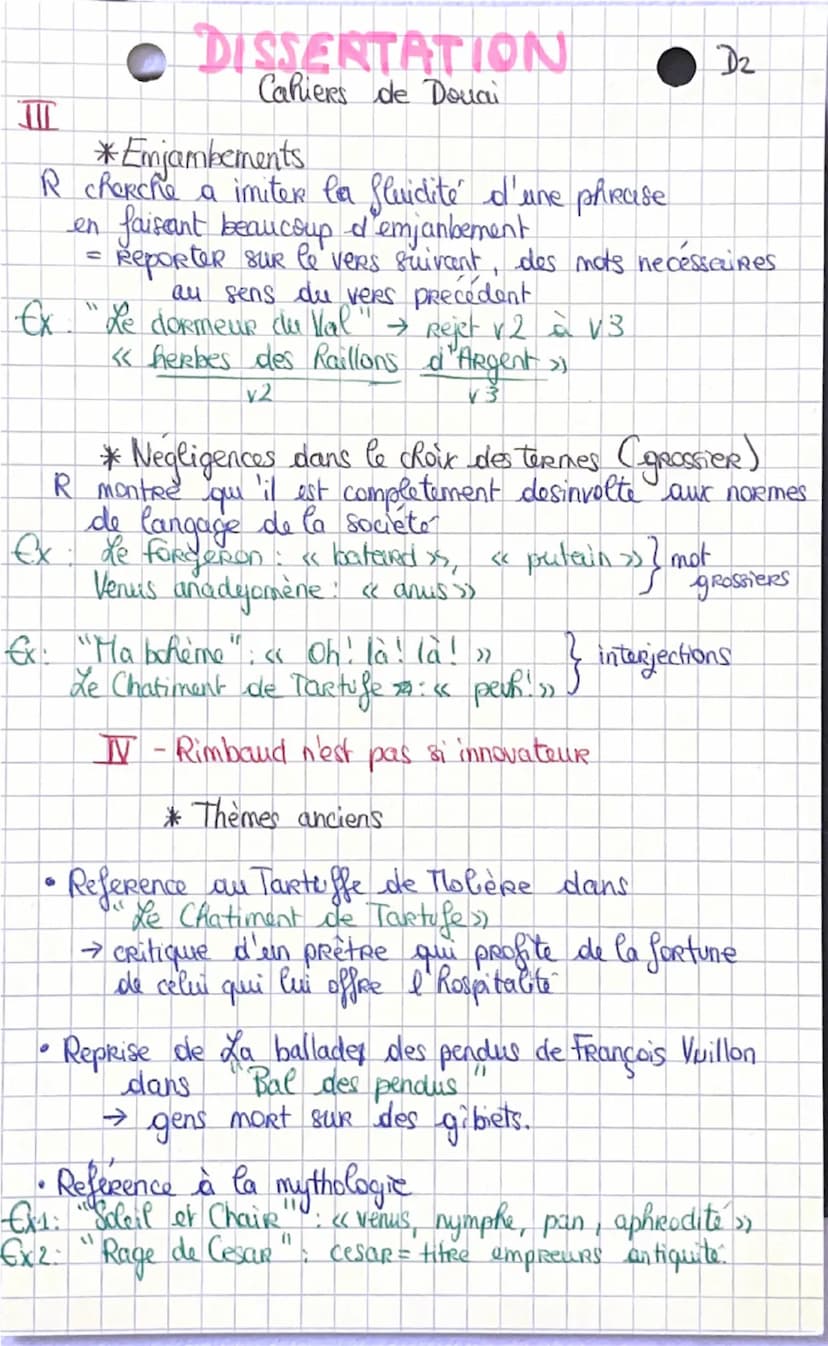 DISSERTATION
D2
Cahiers de Douai
III
* Emjambements
R cherche a imiter la fluidité d'une phrase
en faisant beaucoup d'emjanbement
= Reporter sur le vers suivant, des mots necéssaires
au sens du vers précédent
Ex : "Le dormeur du Val" → Rejet v2 à v3
« herbes des haillons d'Argent »
v2 v3
* Négligences dans le choix des termes (grossier)
R montre qu'il est completement desinvolte aux normes
de langage de la société
Ex : Le forgeron : « batard », « putain » } mot
grossiers
Venus anadyomène : « anus »
Ex : "Ma bohème" : « Oh ! là ! là ! » } interjections
Le Chatiment de Tartufe : « peuh ! »
IV - Rimbaud n'est pas si innovateur
* Thèmes anciens
• Reference au Tartuffe de Molière dans
"Le Chatiment de Tartufe »
→ critique d'un prêtre qui profite de la fortune
de celui qui lui offre l'hospitalité
• Reprise de La ballade des pendus de François Vuillon
dans "Bal des pendus"
→ gens mort sur des gibiets.
• Reférence à la mythologie
Ex1 : "Soleil et Chair" : « venus, nymphe, pan, aphrodité »
Ex2 : "Rage de Cesar" : cesar = titre empreurs antiquité.